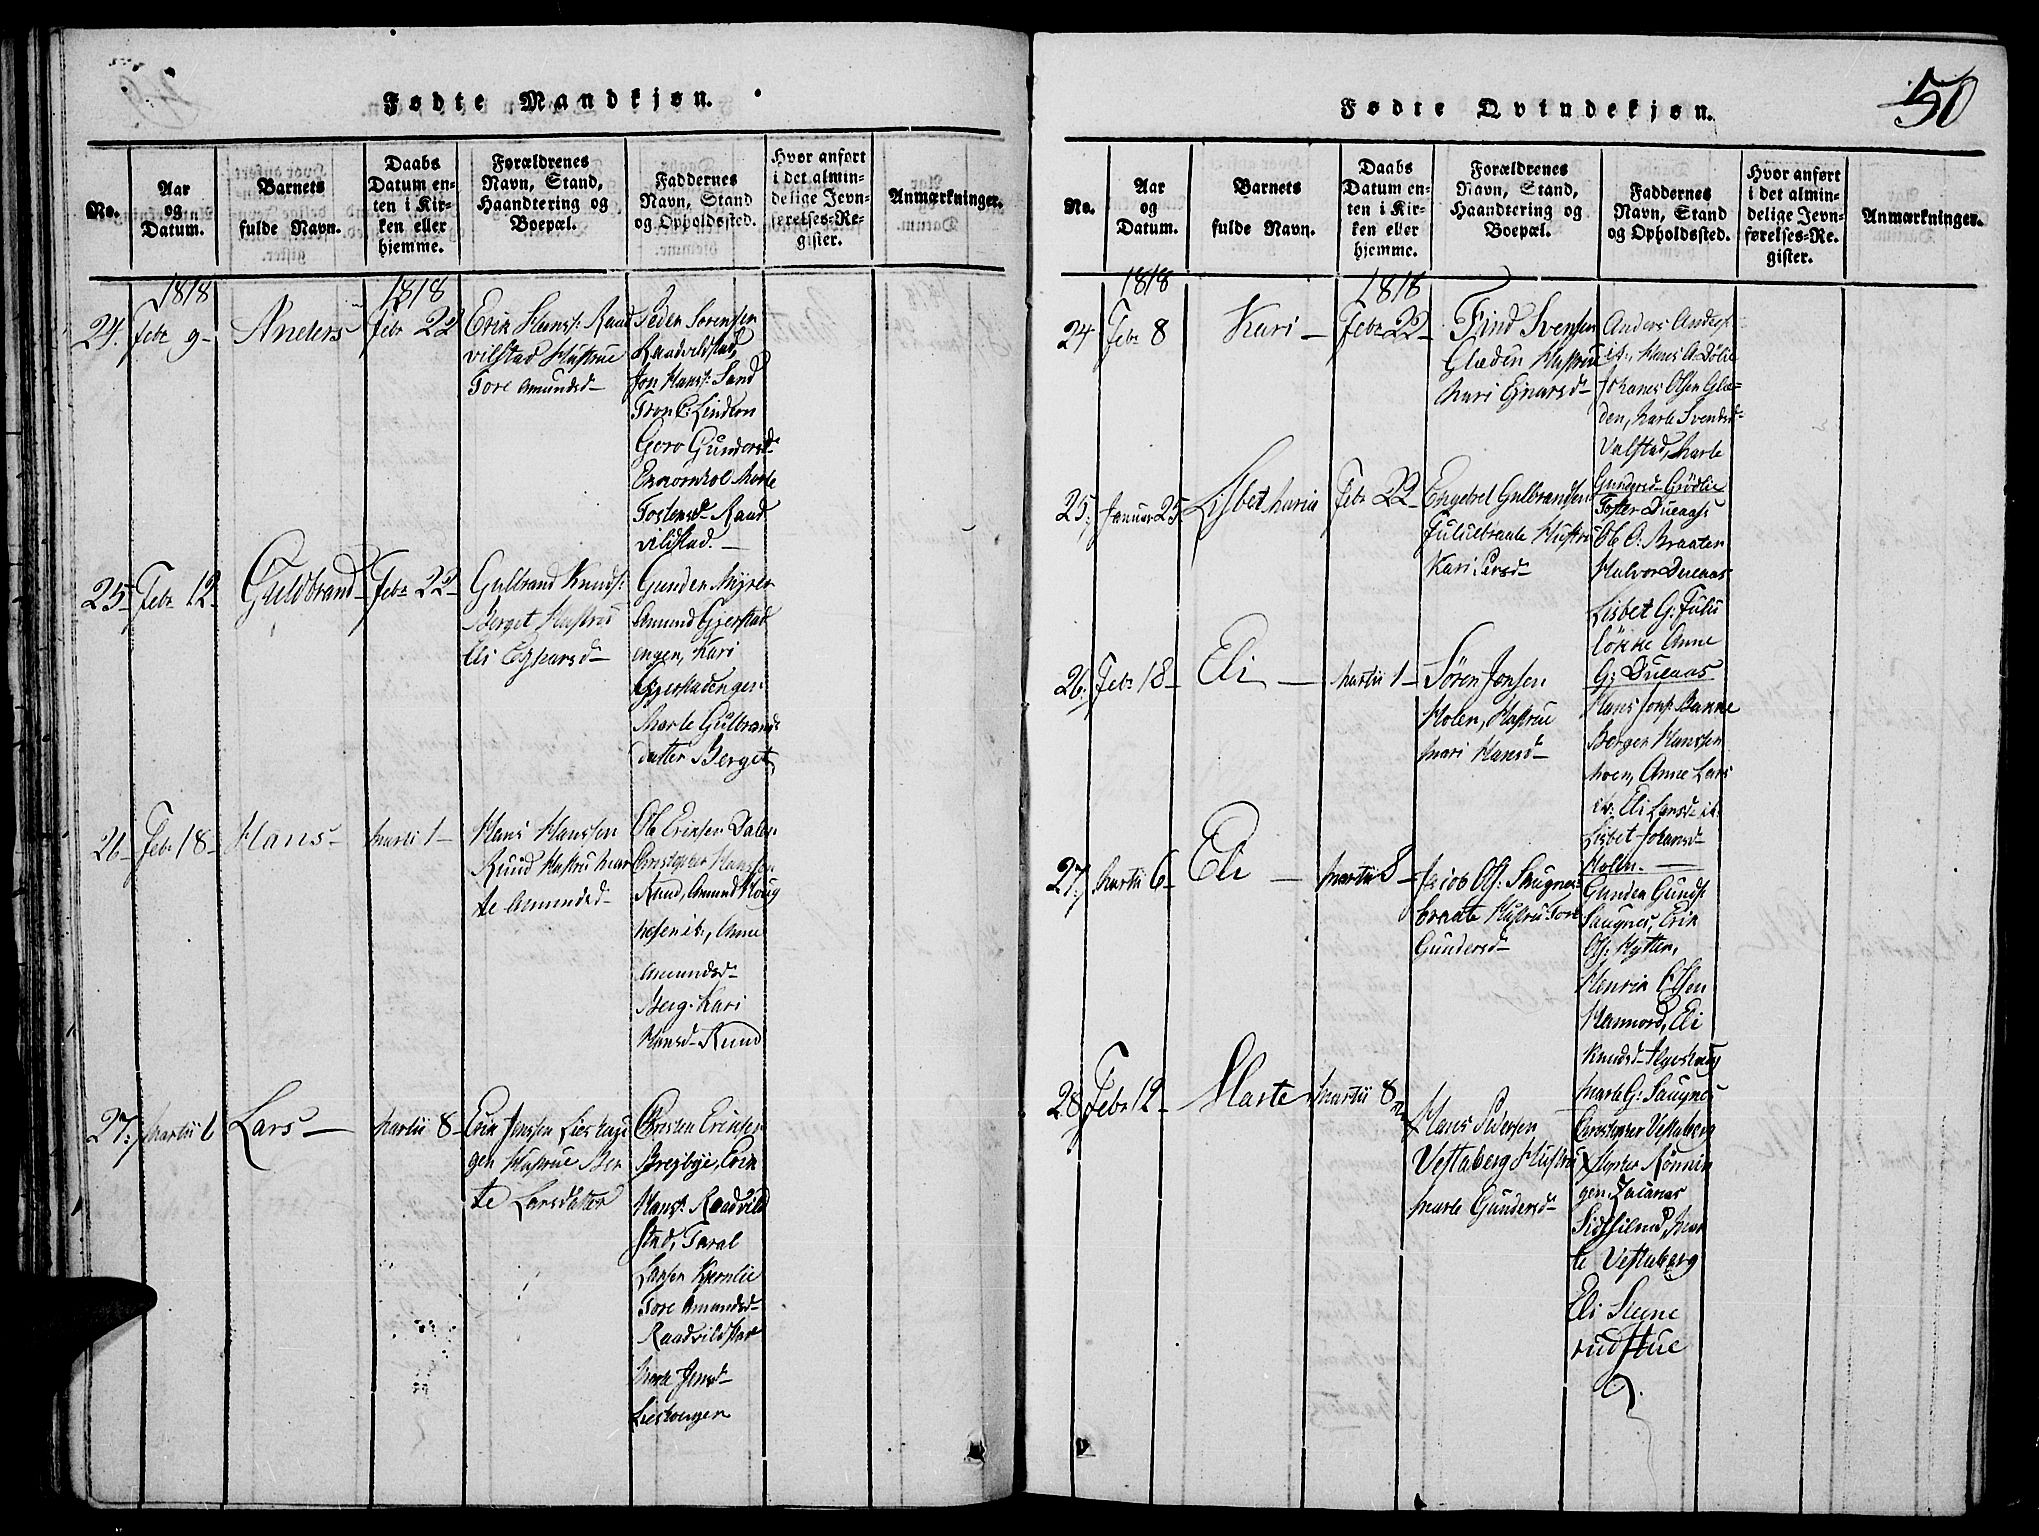 Fødte Mandkjøn.
No.
Aar
og
Datum.
Barnets
fulde Navn.
Daabs
Datum en-
ten i Kir-
ken eller
hjemme.
Forældrenes
Navn, Stand,
Haandtering og
Boepæl.
Faddernes
Navn, Stand
og Opholdssted.
Hvor anført
i det almin-
delige Jevn-
førelses-Re-
gister.
Anmærkninger.
1818
1818
24. Febr 9-
Anders
Febr 22
Erik Hans: Raad
vilstad Hustrue
Tore Amundsd-
Peder Sørensen
Raadvildstad,
Jon Hans: Sand
Tron C: Lindson
Goro Gundersd-
Marte
Tostensd- Raad
vildstad.-
25- Febr 12-
Guldbrand
Febr 22-
Gulbrand Knuds:
Berget Hustru
Eli
Gunder Myrer
Amund Gjerstad
engen, Kari
Gjerstadengen
Marte Gulbrands
datter Berget
26- Febr 18-
Hans-
Martii 1-
Hans Hanssen
Ruud Hustru Mar
te Amundsd-
Ole Eriksen Dalen
Christopher Hanssen
Ruud, Amund Houg
nesen it:, Anne
Amundsd-
Berg. Kari
Hansd- Ruud
27: Martii 6
Lars-
Martii 8-
Erik Jensen Lieshage
gen Hustrue Ber
te Larsdatter
Christen Eriksen
Brejbye, Erik
Hans: Raadvild
stad, Taral
Larsen Kjernlie
Tore Amundsd-
Raadvildstad
Marte Jensd-
Fødte Qvindekjøn.
50
No.
Aar
og
Datum.
Barnets
fulde Navn.
Daabs
Datum en-
ten i Kir-
ken eller
hjemme.
Forældrenes
Navn, Stand,
Haandtering og
Boepæl.
Faddernes
Navn, Stand
og Opholdssted.
Hvor anført
i det almin-
delige Jevn-
førelses-Re-
gister.
Anmærkninger.
1818
1818
24 Febr 8
Kari-
Febr 22-
Find Svensen
Glæden Hustrue
Mari Ejnarsd-
Anders Anders:
it:, Hans A: Dølie
Johanes Olsen Glæ-
den, Marte Svendsd-
Valstad, Marte
Gundersd- Grødlie
25: Januar 25.
Lisbet Maria
Febr 22-
Engebret Gulbrandsen
Fulubraate Hustru
Kari Persd-
Tosten Dueaas
Ole O: Braaten
Halvor Dueaas
Lisbet G: Fulu
løkke Anne
G: Dueaas
26. Febr 18-
Eli-
Martii 1-
Søren Jonsen
Holen, Hustrue
Mari Hansd-
Hans Jons: Bakke
Bergen Hanssen
Moen, Anne Lars
it: Eli Larsd- it:
Lisbet Johansd-
Holen.-
27: Martii 6-
Eli-
Martii 8-
Jacob Ols: Saugnes-
braate Hustru Tore
Gundersd-
Gunder Gunds:
Saugnes, Erik
Ols: Hytten,
Henrik Olsen
Hamnord, Eli
Knudsd-
Marte G: Saugnes
28 Febr 12-
Marte
Martii 8
Hans Pedersen
Vestaberg Hustru
Marte Gundersd-
Christopher Vestaberg
Rønnin
gen, Zacarias
te Vestaberg
Eli Stegne
rudstue